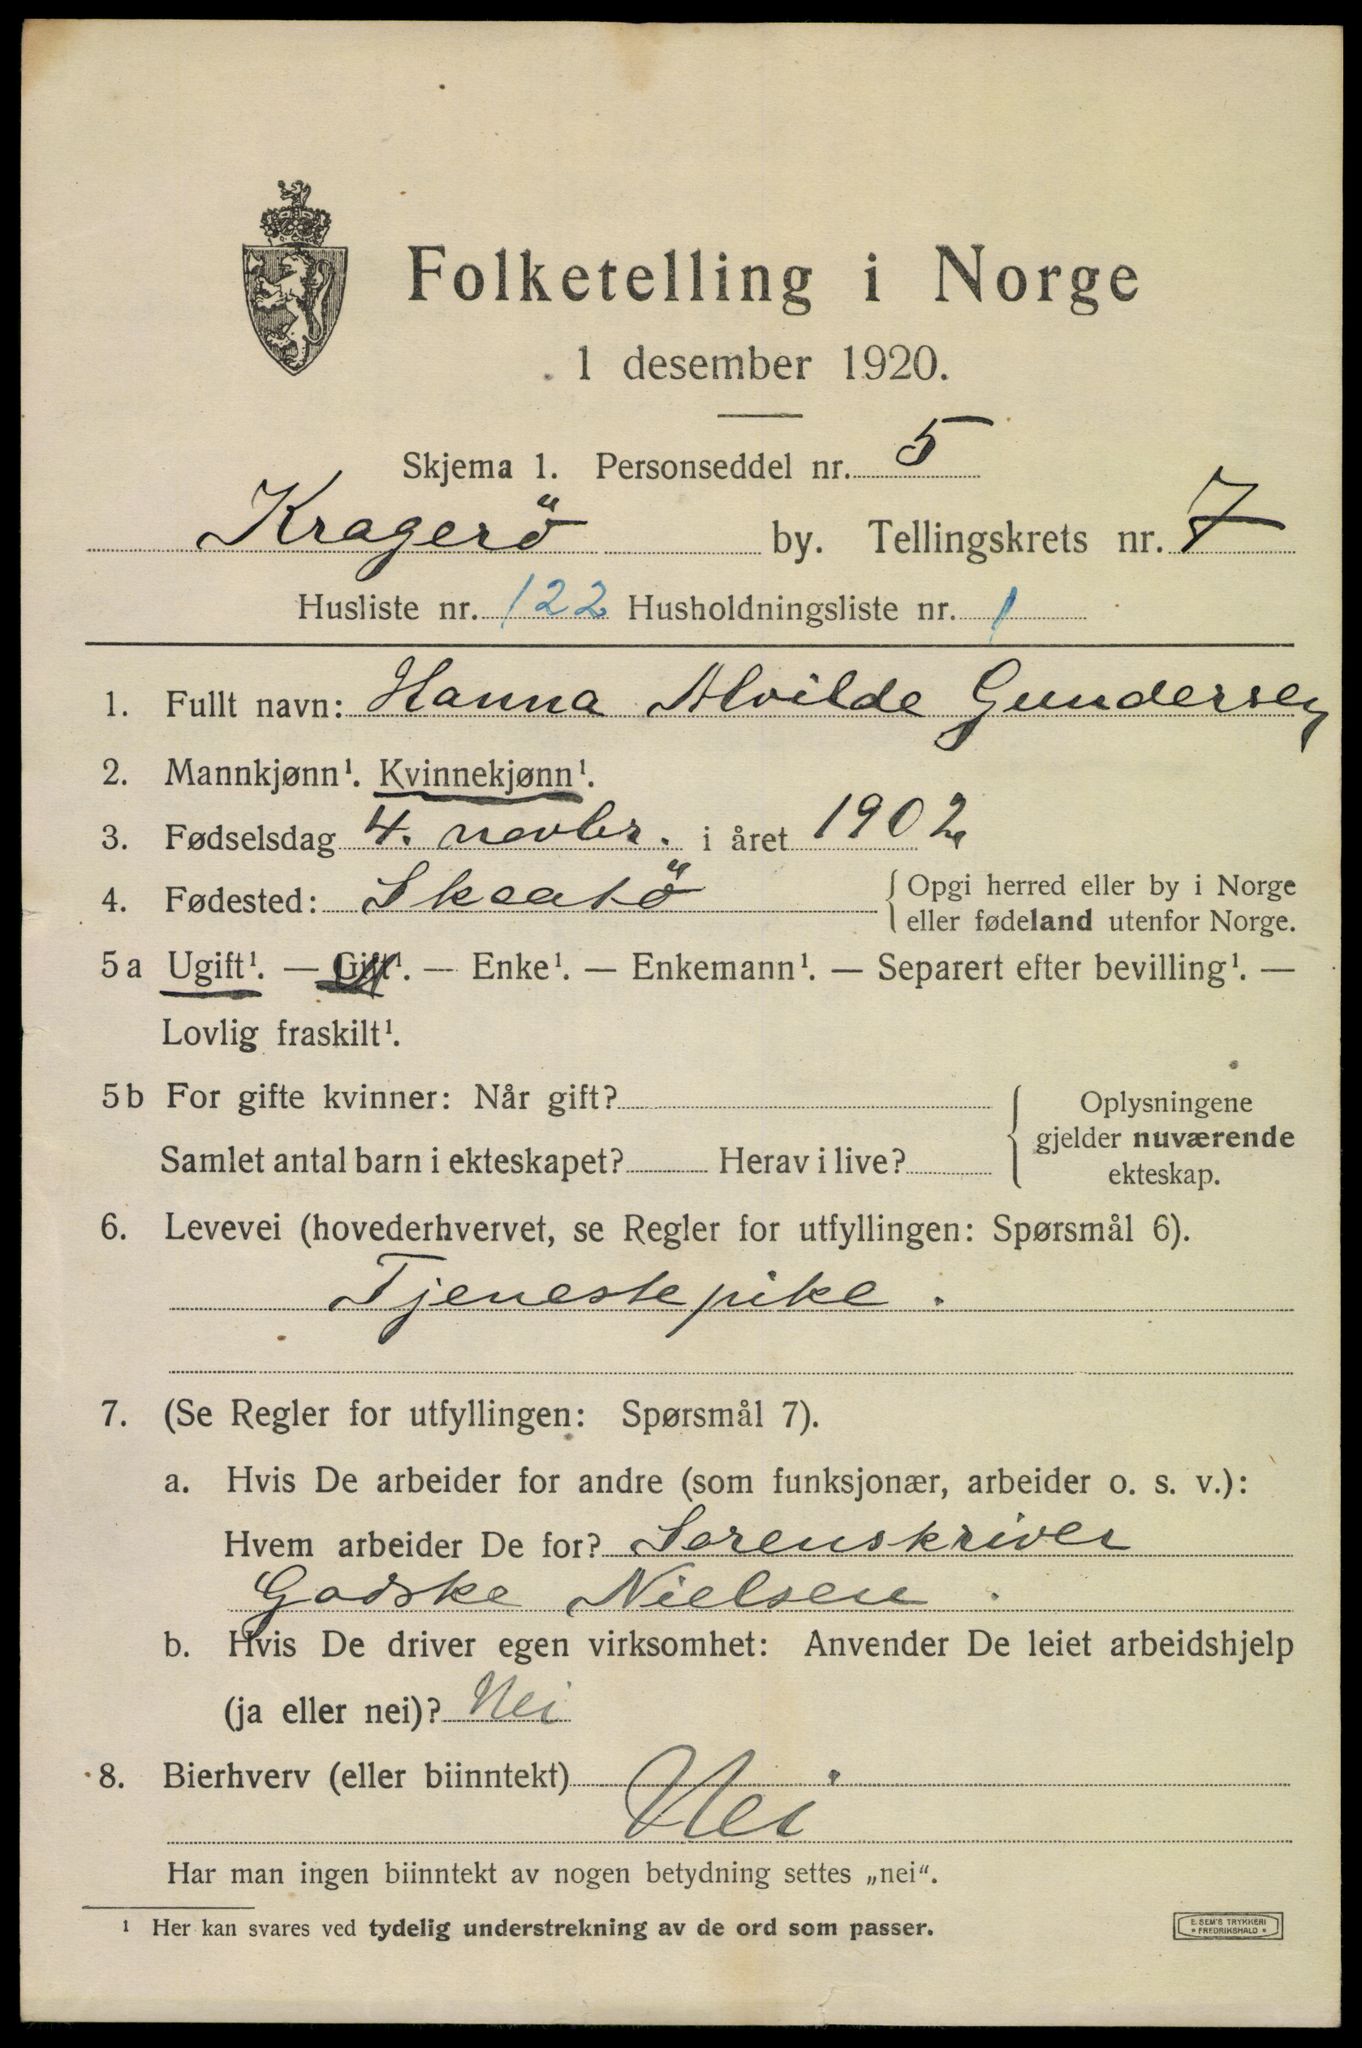 Folketelling i Norge
1 desember 1920.
Skjema 1. Personseddel nr. 5
Kragerö by. Tellingskrets nr. 7
Husliste nr. 122 Husholdningsliste nr. 1
1. Fullt navn: Hanna Alvilde Gundersen
2. Mannkjønn¹. Kvinnekjønn¹.
3. Fødselsdag 4. novbr. i året 1902
4. Fødested: Skaatö { Opgi herred eller by i Norge
eller fødeland utenfor Norge.
5a Ugift¹. — Gift¹. — Enke¹. — Enkemann¹. — Separert efter bevilling¹. —
Lovlig fraskilt¹.
5b For gifte kvinner: Når gift? { Oplysningene
gjelder nuværende
Samlet antal barn i ekteskapet? Herav i live?
ekteskap.
6. Levevei (hovederhvervet, se Regler for utfyllingen: Spørsmål 6).
Tjenestepike.
7. (Se Regler for utfyllingen: Spørsmål 7).
a. Hvis De arbeider for andre (som funksjonær, arbeider o. s. v.):
Hvem arbeider De for? Sorenskriver
Godske Nielsen.
b. Hvis De driver egen virksomhet: Anvender De leiet arbeidshjelp
(ja eller nei)? Nei
8. Bierhverv (eller biinntekt)
Nei
Har man ingen biinntekt av nogen betydning settes „nei“.
¹ Her kan svares ved tydelig understrekning av de ord som passer.
E. SEM'S TRYKKERI
• FREDRIKSHALD •